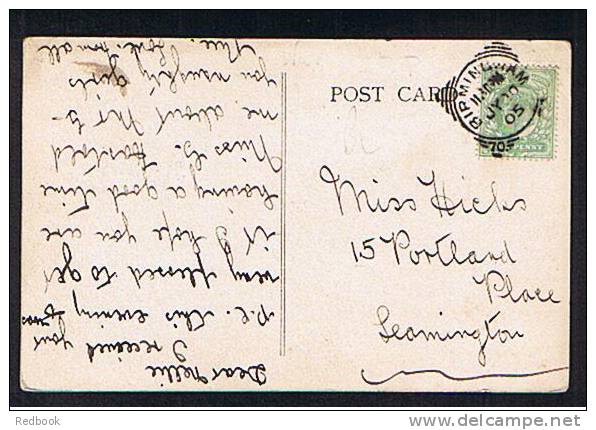 POST CARD
BIRMINGHAM
JY 20
05
70
PENNY
Miss Hicks
15 Portland
Place
Leamington
Dear Nellie
I received your
p.c. this evening & was
very pleased to get
it I hope you are
having a good time
Miss G.
me about Mr G
you naughty girls
love from all
Redbook
delcampe.net